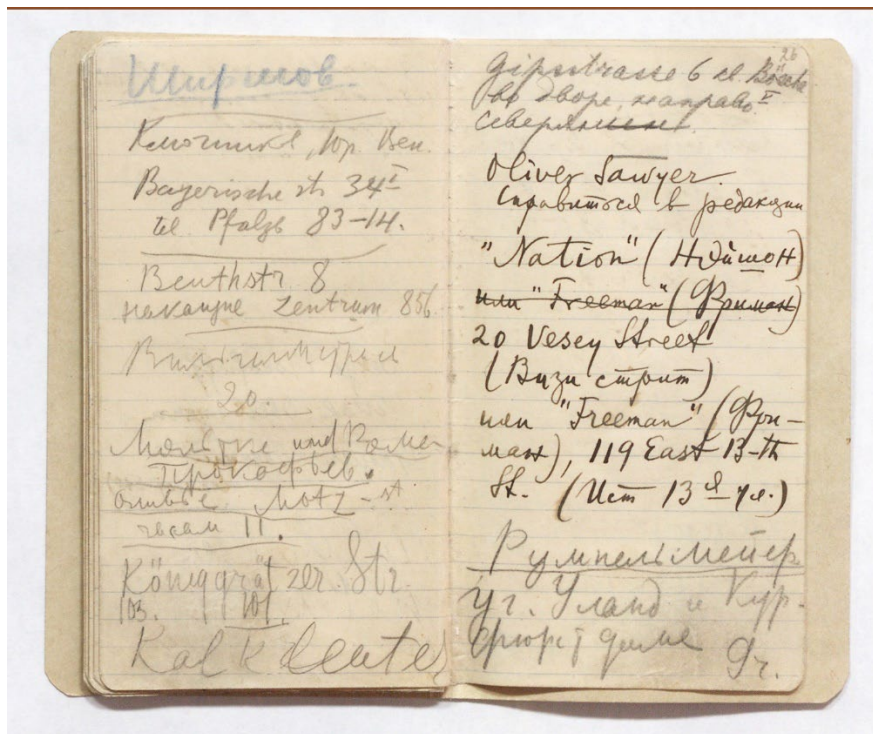 Ширшов
Ключникъ, Юр. Вен.
Bayerische str 34 I
tel Pfalzb 83–14.
Beuthstr 8
накануне Zentrum 856
20.
und
Прокофьев.
Motz – st
часам 11.
Königgrätzer Str.
103. 101
26
Gipsstrasse 6
во дворе, направо
Oliver Sawyer.
Справиться в редакции
"Nation" (Нэйшон)
или "Freeman" (Фриман)
20 Vesey Street
(Визи стрит)
или "Freeman" (Фри-
ман), 119 East 13-th
St. (Ист 13я ул.)
Румпельмейер
уг. Уланд и Кур-
фюрстдаме 9 г.